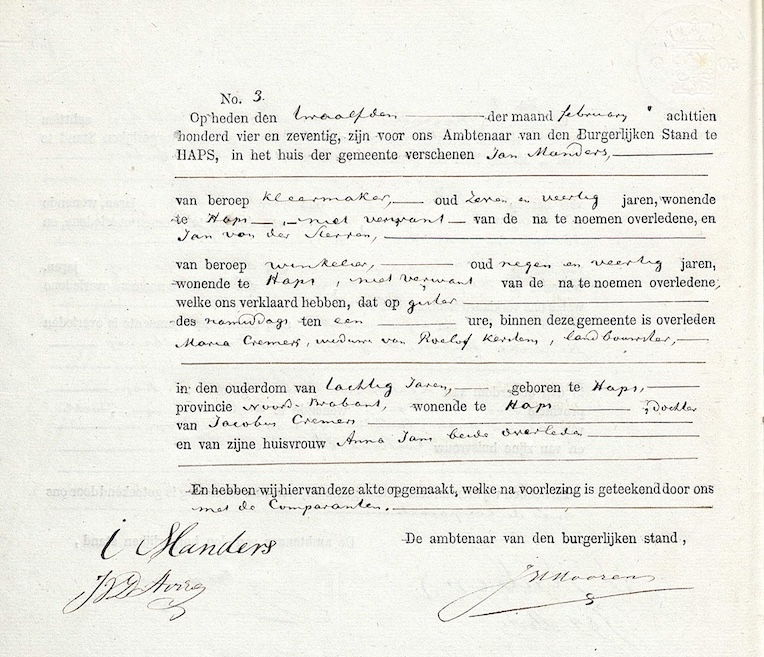 No. 3.
Op heden den twaalfden der maand february achttien
honderd vier en zeventig, zijn voor ons Ambtenaar van den Burgerlijken Stand te
HAPS, in het huis der gemeente verschenen Jan Manders,
van beroep kleermaker, oud zeven en veertig jaren, wonende
te Haps, niet verwant van de na te noemen overledene, en
Jan van der Sterren,
van beroep winkelier, oud negen en veertig jaren,
wonende te Haps, niet verwant van de na te noemen overledene,
welke ons verklaard hebben, dat op gister
des namiddags ten een ure, binnen deze gemeente is overleden
Maria Cremers, weduwe van Roelof Kersten, landbouwster,
in den ouderdom van tachtig Jaren, geboren te Haps,
provincie Noord-Brabant, wonende te Haps, Dochter
van Jacobus Cremers
en van zijne huisvrouw Anna Jans beide overleden
En hebben wij hiervan deze akte opgemaakt, welke na voorlezing is geteekend door ons
met de Comparanten.
De ambtenaar van den burgerlijken stand,
Manders